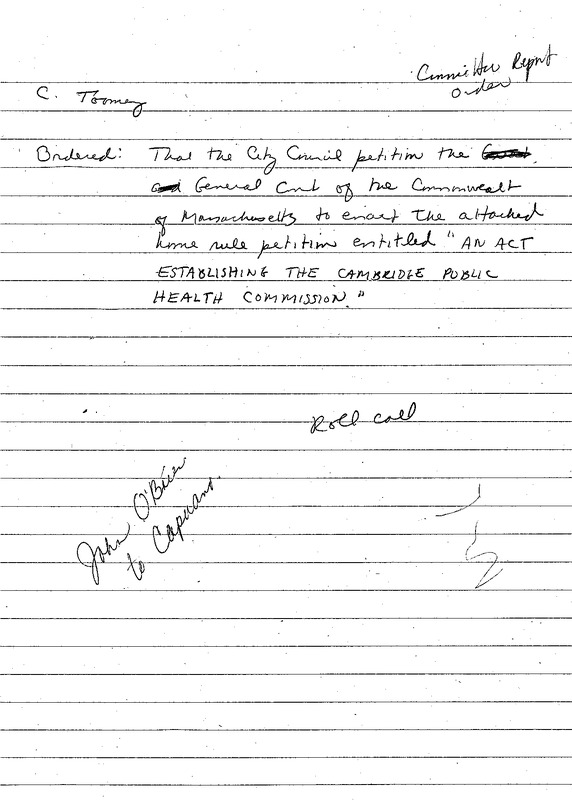 Committee Report
Order
C. Toomey
Ordered: That the City Council petition the
General Court of the Commonwealth
of Massachusetts to enact the attached
home rule petition entitled "AN ACT
ESTABLISHING THE CAMBRIDGE PUBLIC
HEALTH COMMISSION."
Roll call
John O'Brien
to Capuano.